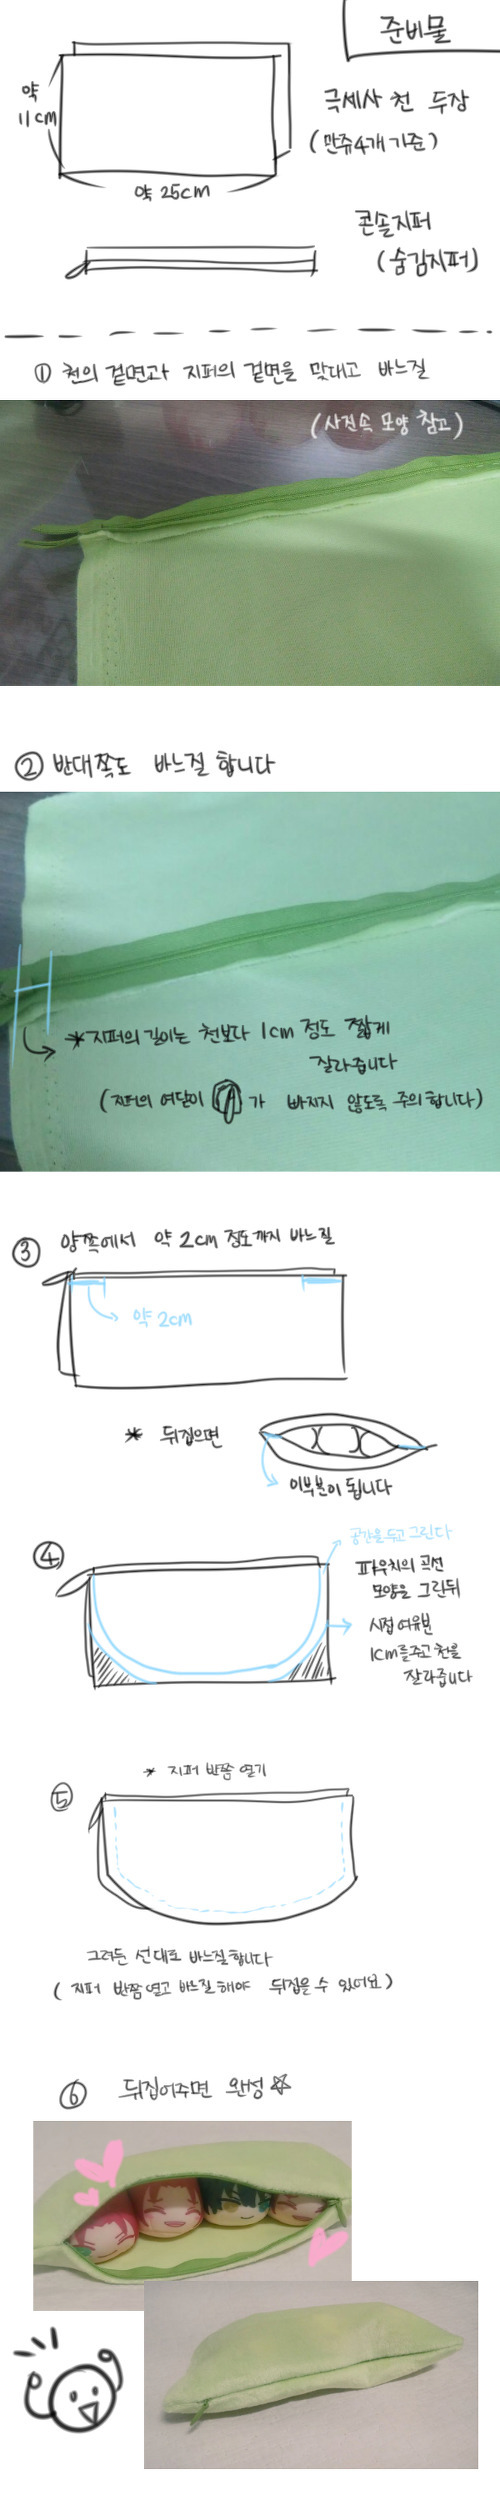 준비물
약
11cm
극세사 천 두장
(만쥬4개 기준)
약 25cm
콘솔지퍼
(숨김지퍼)
① 천의 겉면과 지퍼의 겉면을 맞대고 바느질
(사진속 모양 참고)
② 반대쪽도 바느질 합니다
* 지퍼의 길이는 천보다 1cm 정도 짧게
잘라줍니다
(지퍼의 여닫이 가 빠지지 않도록 주의합니다)
③ 양쪽에서 약 2cm 정도까지 바느질
약 2cm
* 뒤집으면
이부분이 됩니다
④
공간을 두고 그린다
파우치의 곡선
모양을 그린뒤
시접 여유분
1cm를 주고 천을
잘라줍니다
* 지퍼 반쯤 열기
⑤
그려둔 선대로 바느질합니다
(지퍼 반쯤 열고 바느질해야 뒤집을 수 있어요)
⑥ 뒤집어주면 완성☆